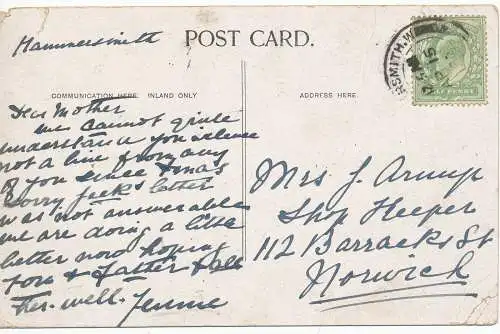 Hammersmith
POST CARD.
COMMUNICATION HERE. INLAND ONLY
ADDRESS HERE.
Dear Mother
we cannot quite
understand you silence
not a line from any
of you since Xmas
sorry Jacks letter
was not answerable
we are doing a little
better now hoping
you & Father & all
her. well. Jennie
Mrs J. Armup
Shop Keeper
112 Barracks St
Norwich
RSMITH.W
HALF PENNY